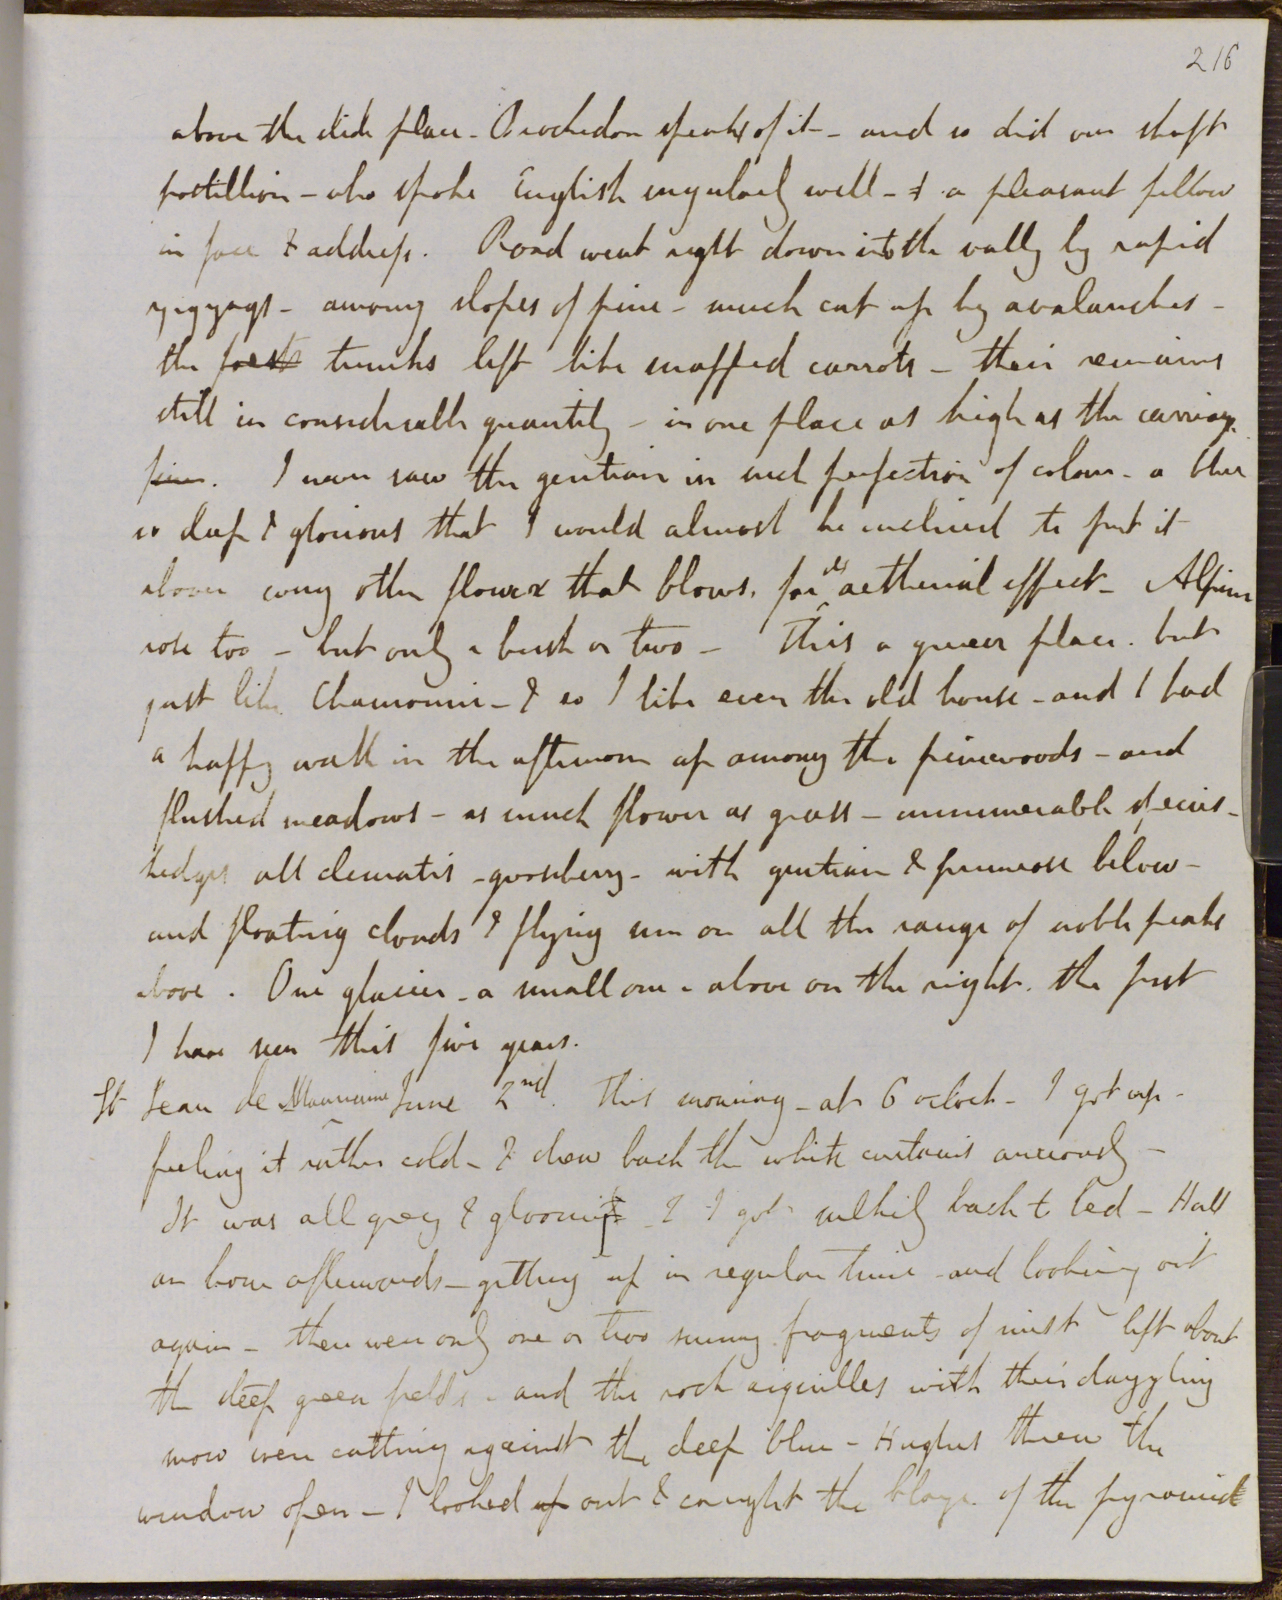 216
above the slide place - Brockedon speaks of it - and so did our sharp
postillion - who spoke English singularly well - & a pleasant fellow
in face & address. Road went right down into the vally by rapid
zigzags - among slopes of pine - much cut up by avalanches -
the trunks left like snapped carrots - their remains
still in considerable quantity - in one place as high as the carriage.
I never saw the gentian in such perfection of colour - a blue
so deep & glorious that I would almost be inclined to put it
above every other flower that blows, for its aetherial effect - Alpine
rose too - but only a bush or two - This a queer place. but
just like Chamonix - & so I like even the old house - and I had
a happy walk in the afternoon up among the pinewoods - and
flushed meadows - as much flower as grass - innumerable species -
hedges all clematis - gooseberry - with gentian & primrose below -
and floating clouds & flying sun on all the range of noble peaks
above. One glacier - a small one - above on the right. the first
I have seen this five years.
St Jean de Maurienne June 2nd. This morning - at 6 oclock - I got up -
feeling it rather cold - & drew back the white curtains anxiously -
It was all grey & gloomy - & I got sulkily back to bed - Half
an hour afterwards - getting up in regular time - and looking out
again - there were only one or two sunny fragments of mist left about
the deep green fields - and the rock aiguilles with their dazzling
snow were cutting against the deep blue - Hughes threw the
window open - I looked up out & caught the blaze of the pyramid